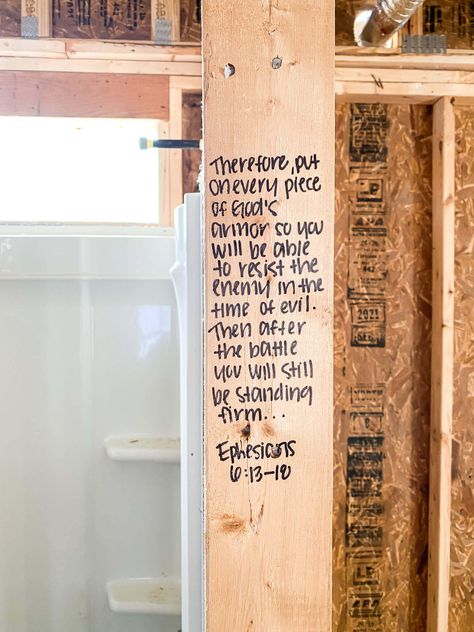 Therefore, put
on every piece
of God's
armor so you
will be able
to resist the
enemy in the
time of evil.
Then after
the battle
you will still
be standing
firm...
Ephesians
6:13-18
2021